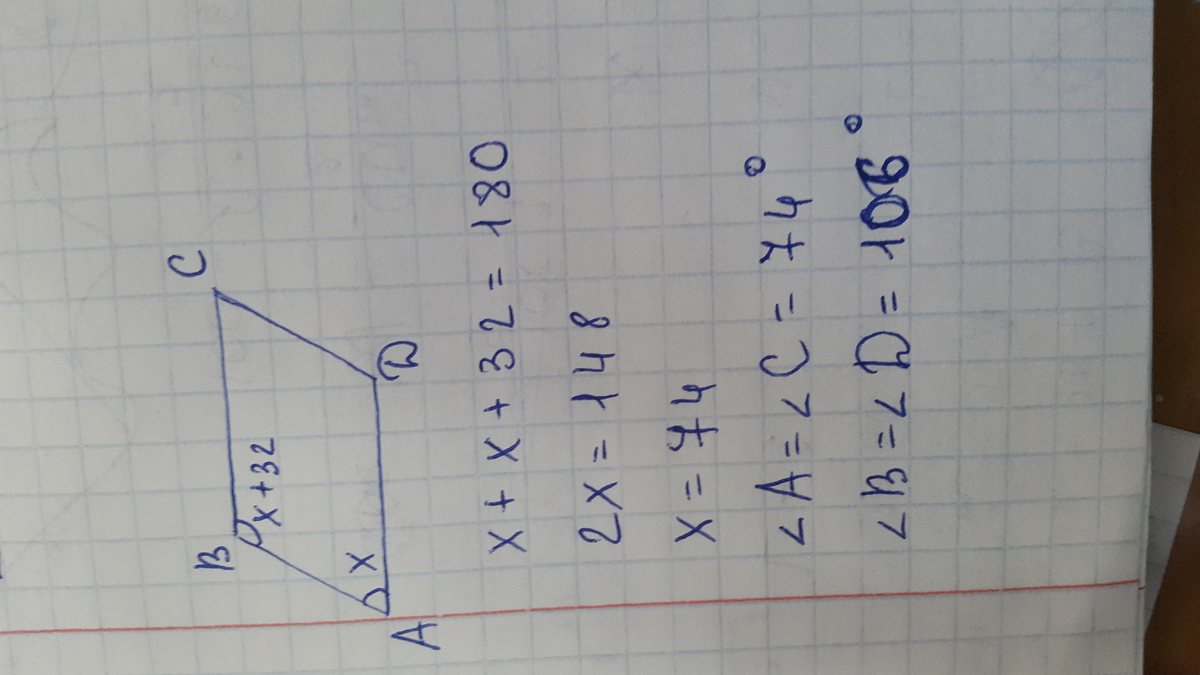 B C
x+32
x
A D
x + x + 32 = 180
2x = 148
x = 74
∠A = ∠C = 74°
∠B = ∠D = 106°